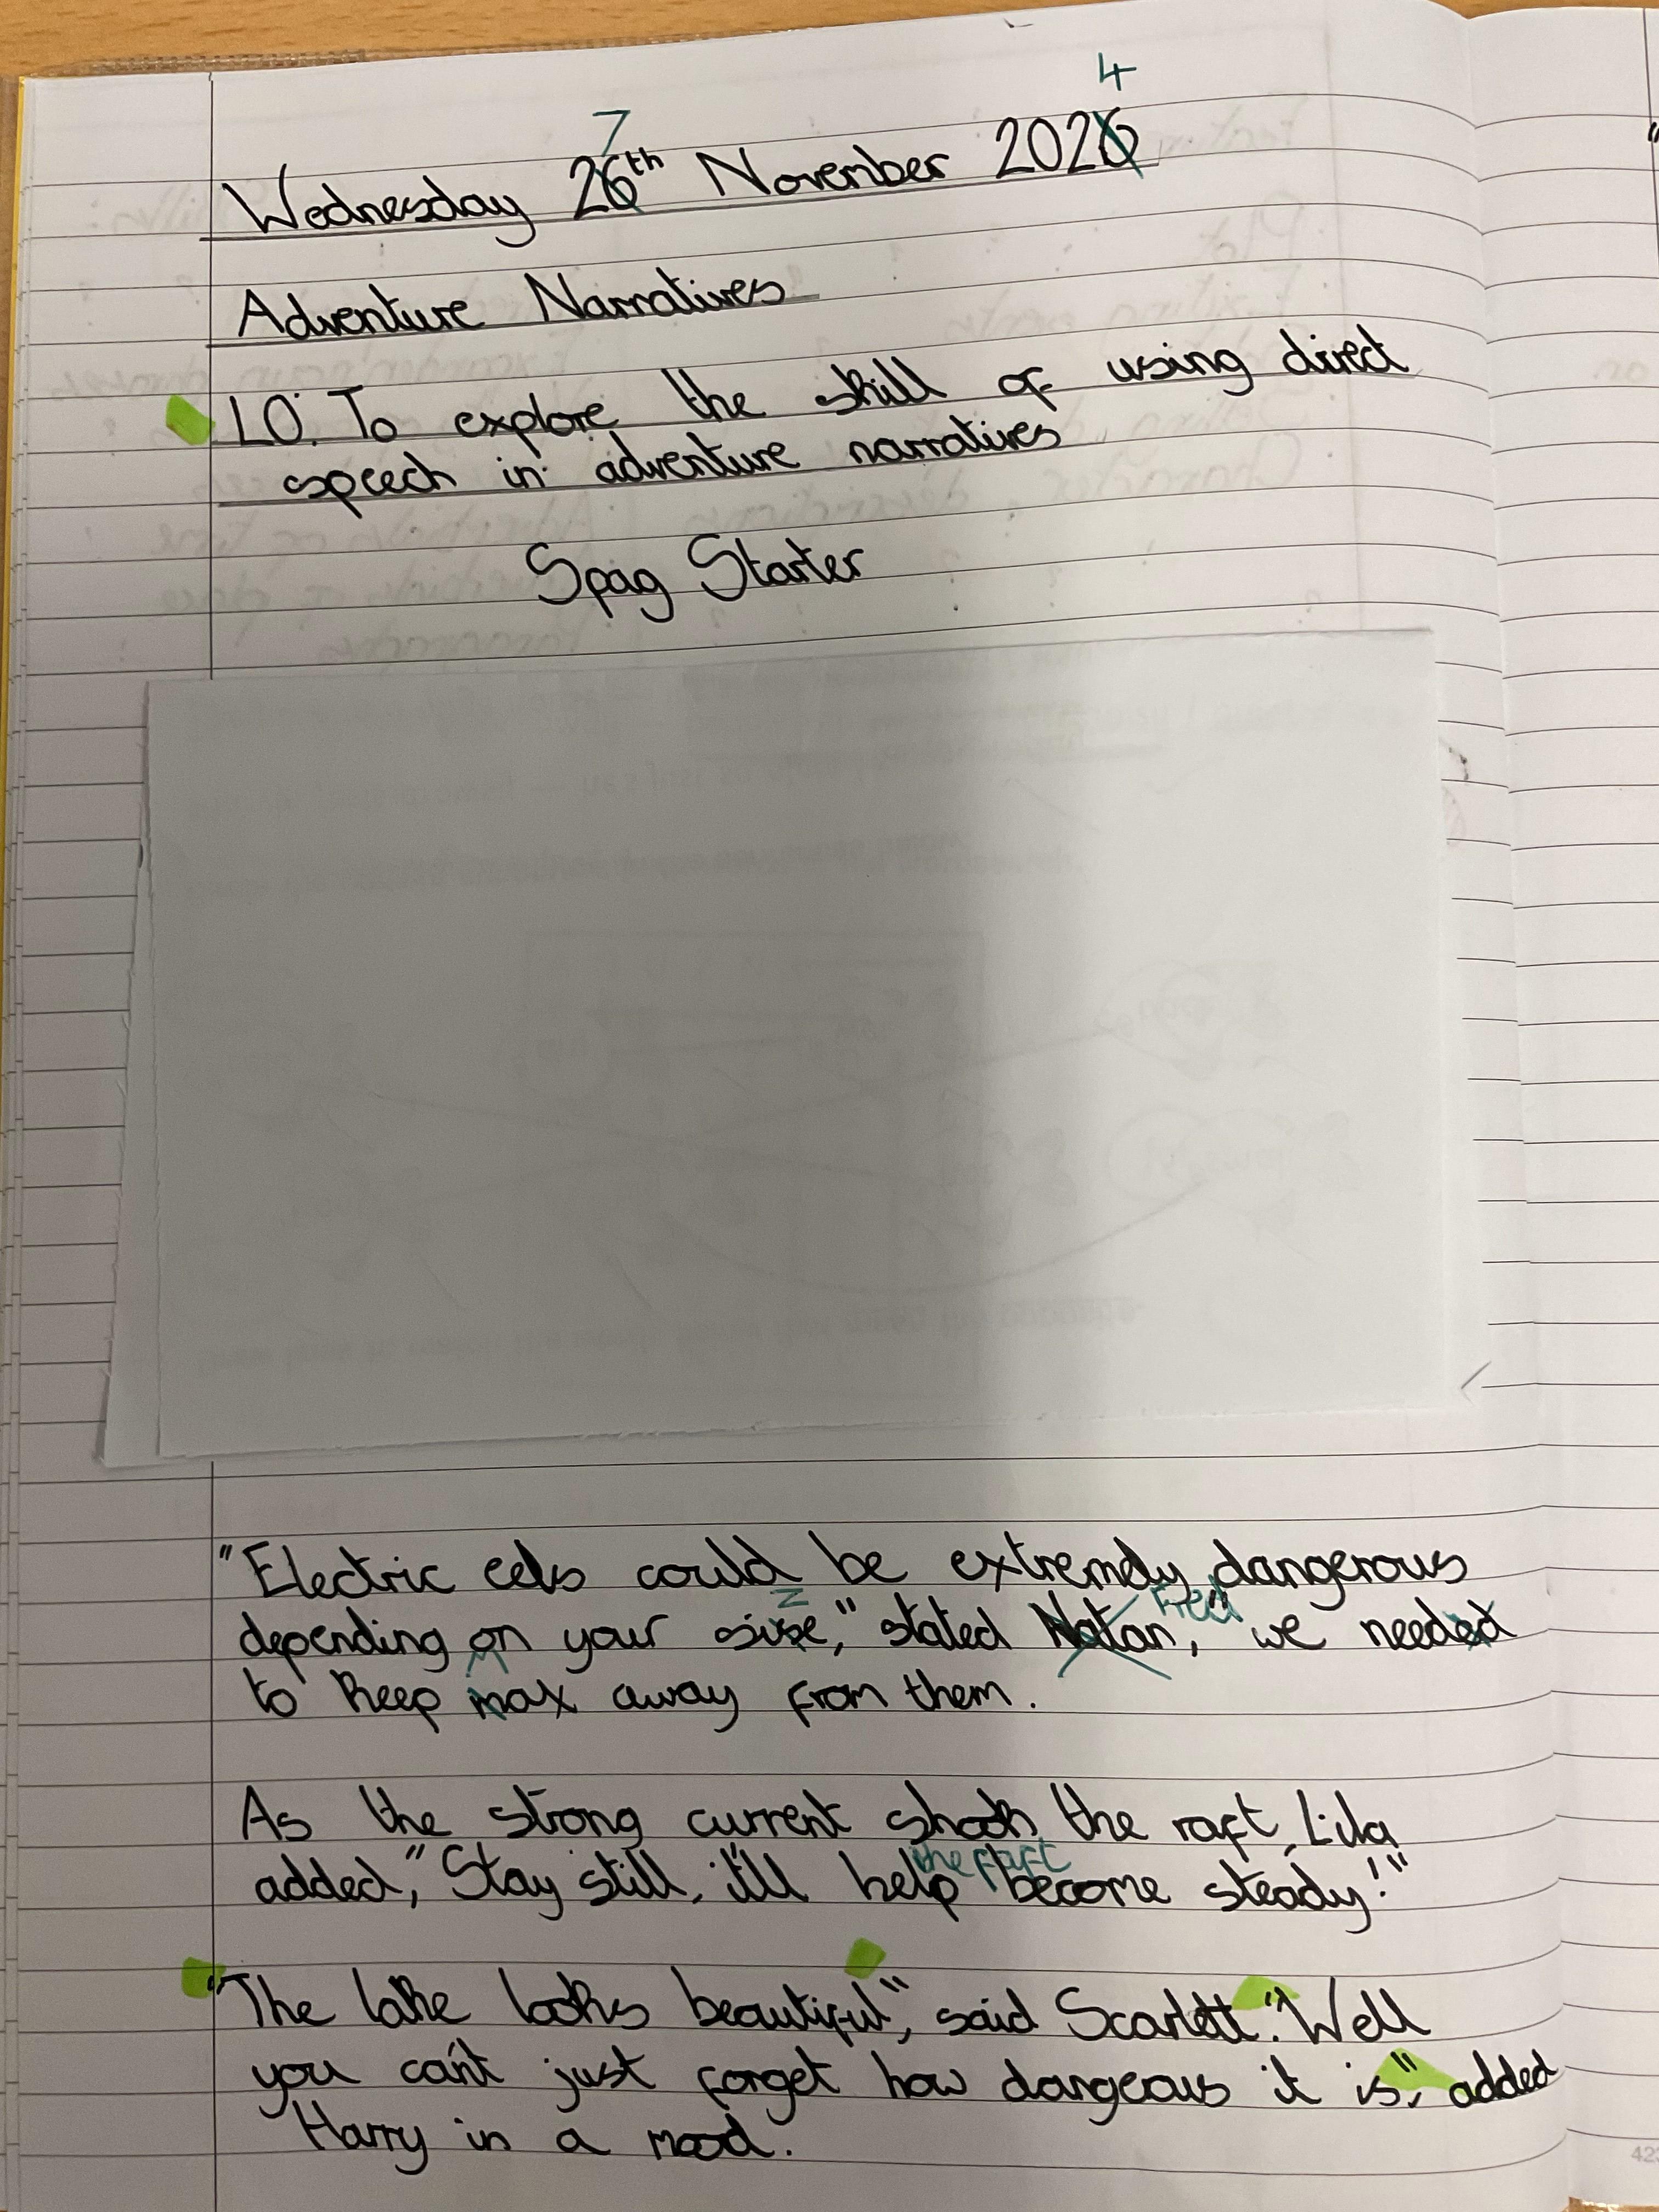 7 4
Wednesday 26th November 2026
Adventure Narratives
LO: To explore the skill of using direct
speech in adventure narratives
Spag Starter
"Electric eels could be extremely dangerous
z Fred
depending on your sise," stated Natan, "we needed
to keep max away from them.
As the strong current shook the raft, Lila
the raft
added, "Stay still, it'll help become steady!"
"The lake looks beautiful", said Scarlett. "Well
you can't just forget how dangeous it is", added
Harry in a mood.